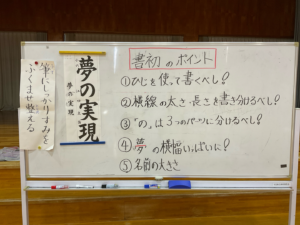 筆にしっかりすみを
ふくませ整える
夢の実現
夢の実現
書初のポイント
①ひじを使って書くべし!
②横線の太さ・長さを書き分けるべし!
③「の」は3つのパーツに分けるべし!
④夢の横幅いっぱいに!
⑤名前の大きさ